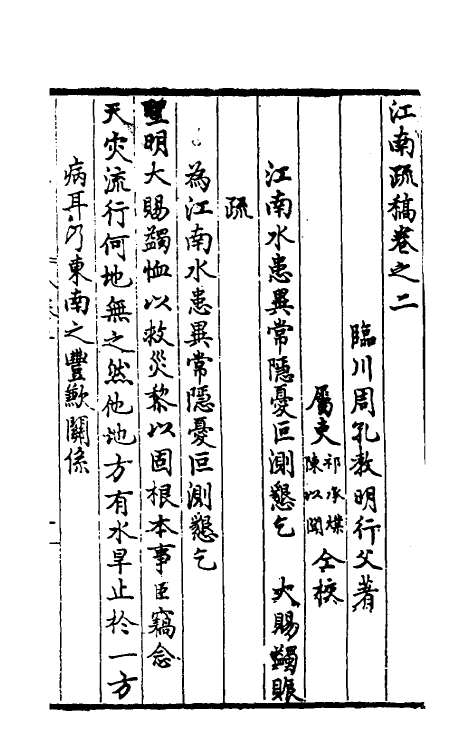 江南疏稿卷之二
臨川周孔教明行父著
屬吏祁承㸁陳以聞仝校
江南水患異常隱憂叵測懇乞 大賜蠲賑
疏
為江南水患異常隱憂叵測懇乞
聖明大賜蠲恤以救災黎以固根本事臣竊念
天灾流行何地無之然他地方有水旱止於一方
病耳乃東南之豐歉關係